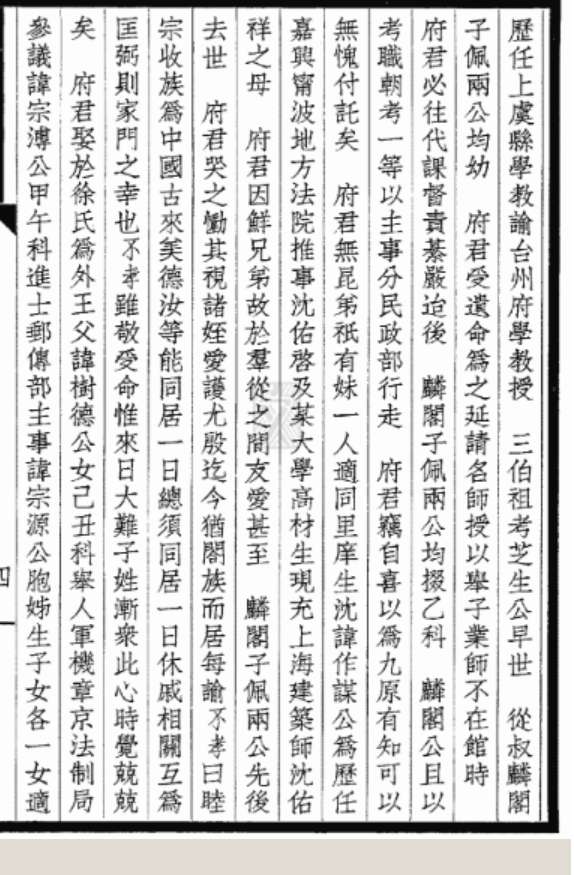 歷任上虞縣學教諭台州府學教授　三伯祖考芝生公早世　從叔麟閣
子佩兩公均幼　府君受遺命爲之延請名師授以舉子業師不在館時
府君必往代課督責綦嚴迨後　麟閣子佩兩公均掇乙科　麟閣公且以
考職朝考一等以主事分民政部行走　府君竊自喜以爲九原有知可以
無愧付託矣　府君無昆弟祇有妹一人適同里庠生沈諱作謀公爲歷任
嘉興甯波地方法院推事沈佑啓及某大學高材生現充上海建築師沈佑
祥之母　府君因鮮兄弟故於羣從之間友愛甚至　麟閣子佩兩公先後
去世　府君哭之慟其視諸姪愛護尤殷迄今猶闔族而居每諭不孝曰睦
宗收族爲中國古來美德汝等能同居一日總須同居一日休戚相關互爲
匡弼則家門之幸也不孝雖敬受命惟來日大難子姓漸衆此心時覺兢兢
矣　府君娶於徐氏爲外王父諱樹德公女己丑科舉人軍機章京法制局
參議諱宗溥公甲午科進士郵傳部主事諱宗源公胞姊生子女各一女適
四